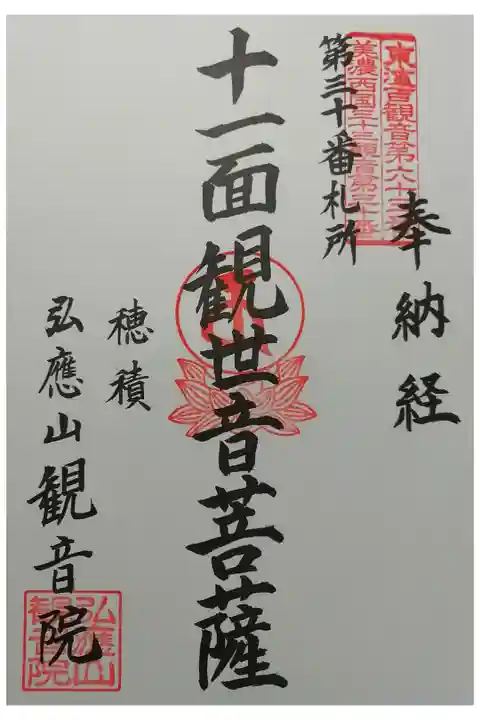 東海百観音第六十三番
美濃西国三十三観音第三十番
奉納経
第三十番札所
十一面観世音菩薩
穂積
弘應山観音院
弘應山
観音院